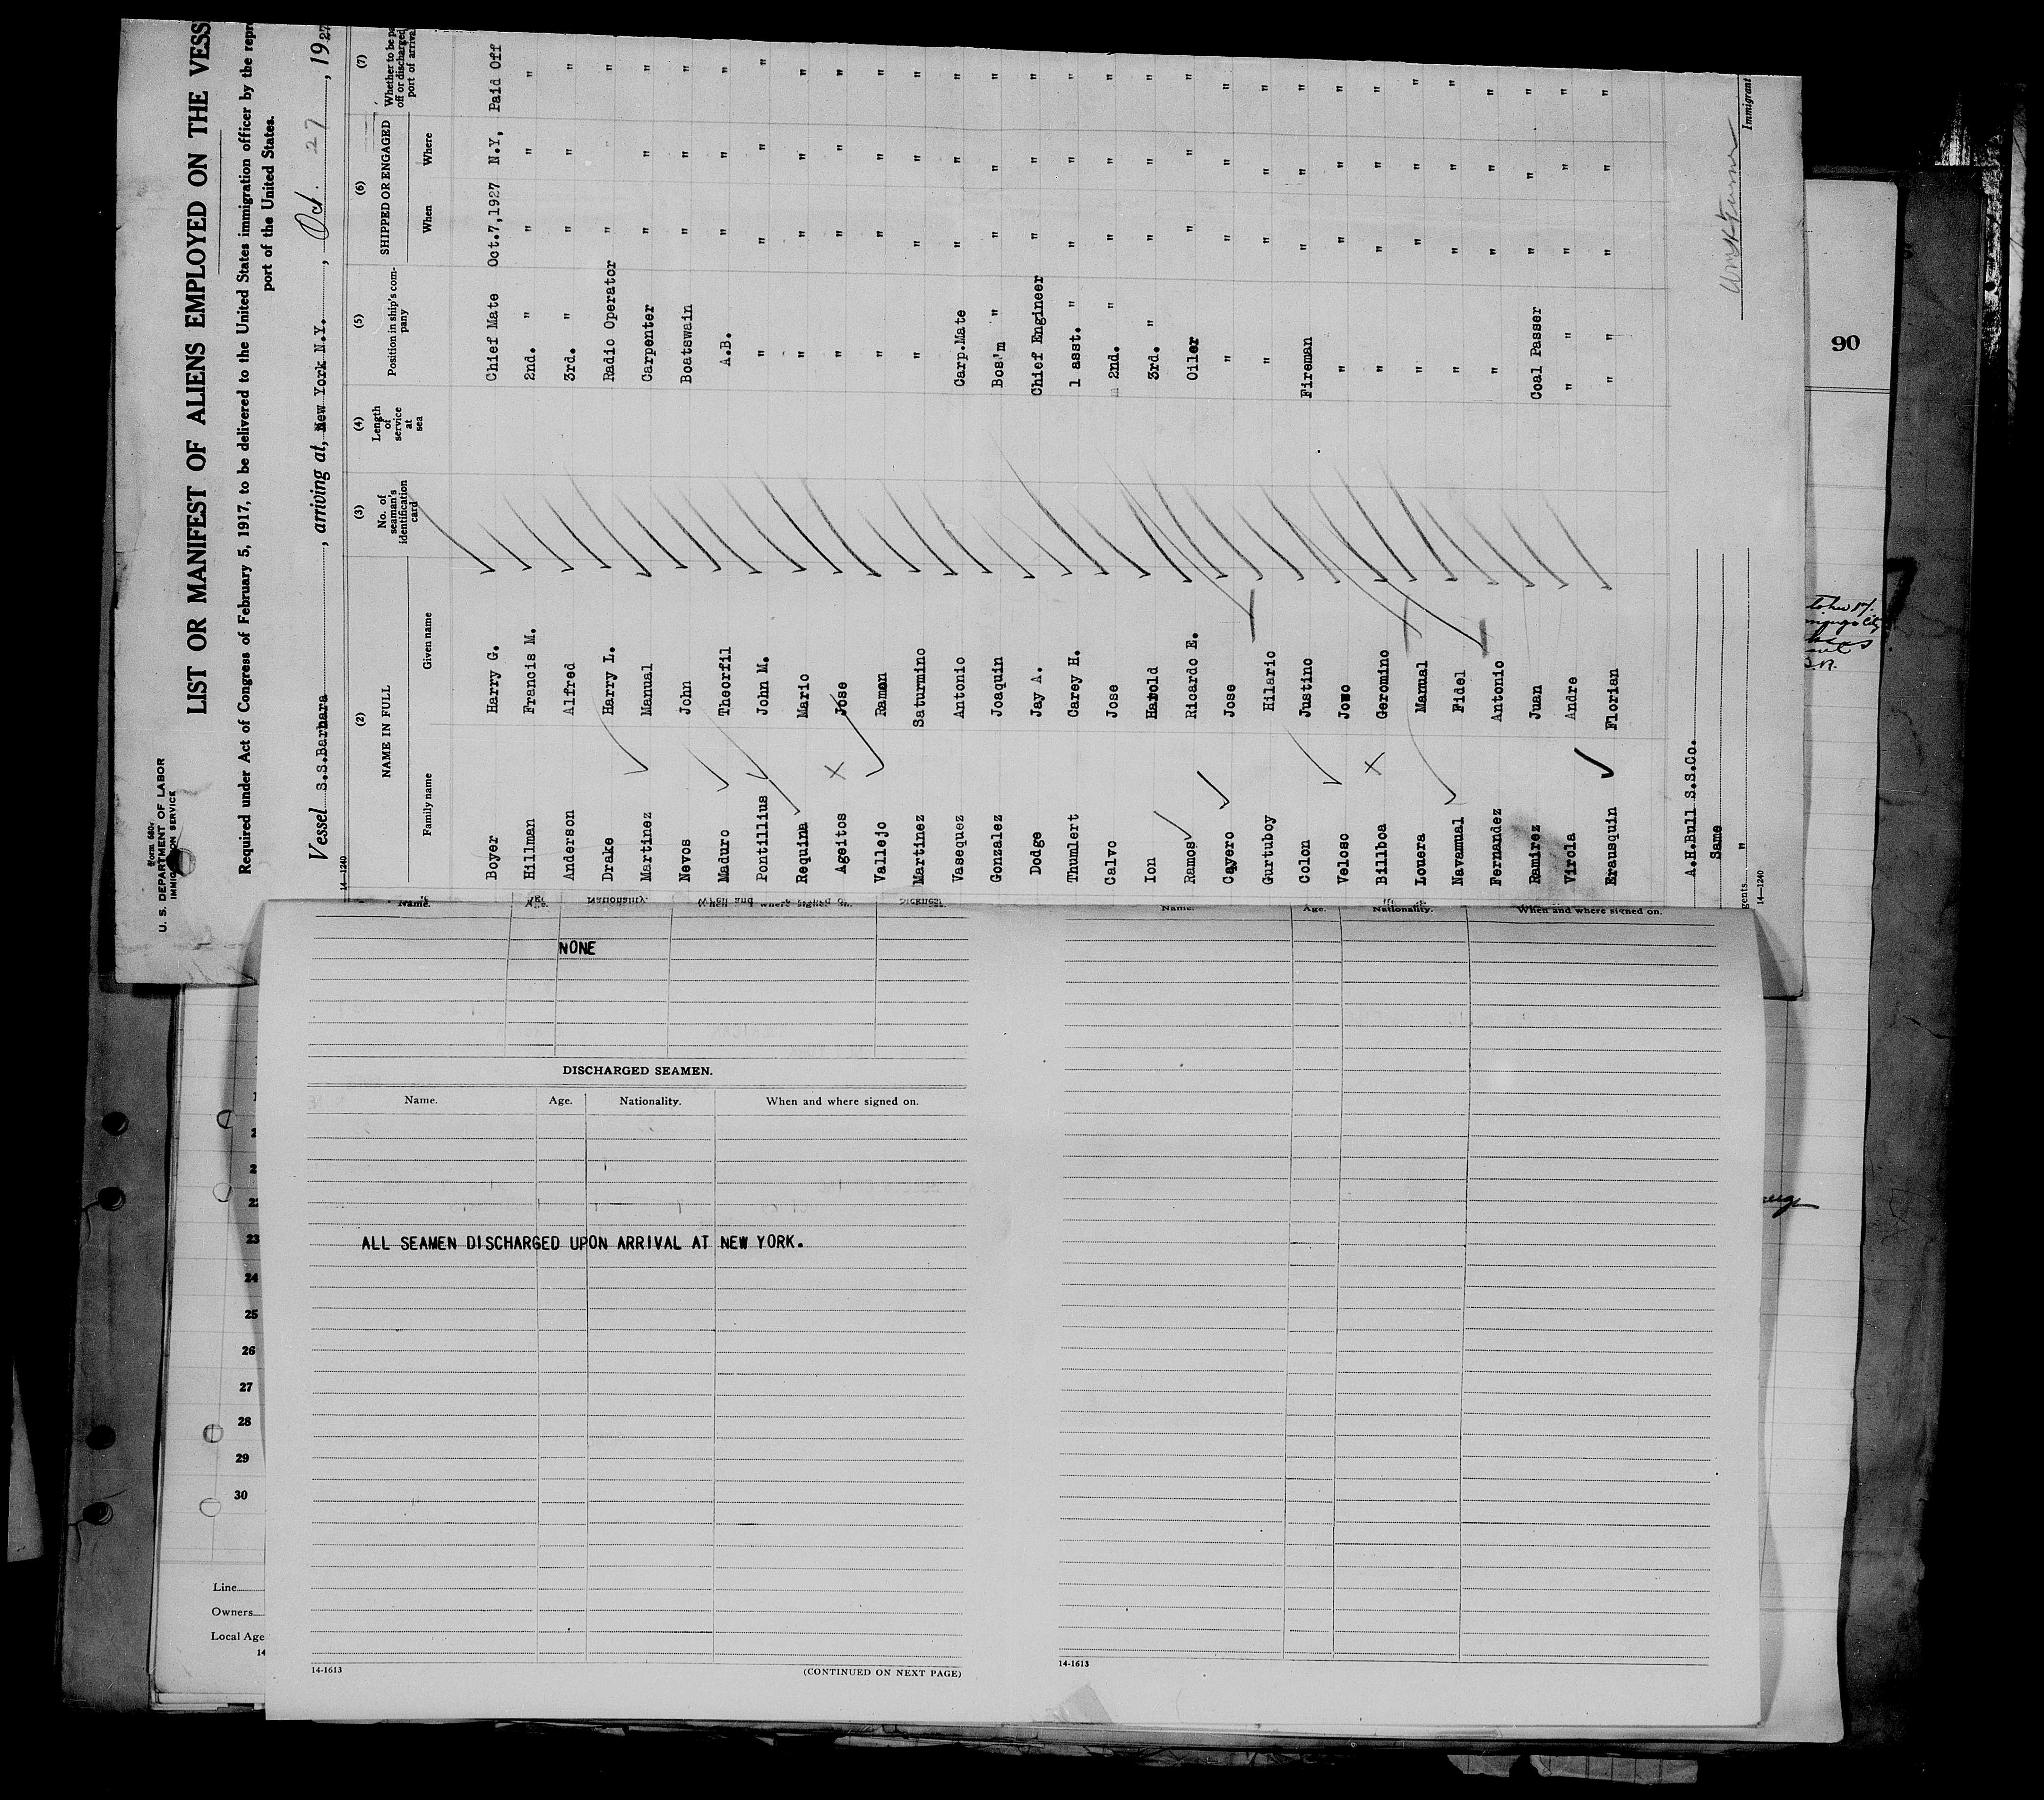 Form 680
U. S. DEPARTMENT OF LABOR
IMMIGRATION SERVICE
LIST OR MANIFEST OF ALIENS EMPLOYED ON THE VESS
Required under Act of Congress of February 5, 1917, to be delivered to the United States immigration officer by the repr
port of the United States.
Vessel S.S.Barbara, arriving at, New York N.Y., Oct. 27, 1927
14-1240
(2) (3) (4) (5) (6) (7)
NAME IN FULL No. of seaman's identification card Length of service at sea Position in ship's company SHIPPED OR ENGAGED Whether to be pa off or discharged port of arrival
Family name Given name When Where
Boyer Harry G. Chief Mate Oct.7,1927 N.Y, Paid Off
Hillman Francis M. 2nd. " " " "
Anderson Alfred 3rd. " " " "
Drake Harry L. Radio Operator " "
Martinez Manual Carpenter " " "
Nevos John Boatswain " " "
Maduro Theorfil A.B. " " "
Pontillius John M. " " " "
Requina Mario " " " "
Ageitos Jose " " " "
Vallejo Ramon " " " "
Martinez Saturmino " " " "
Vasequez Antonio Carp.Mate " " "
Gonzalez Joaquin Bos'm " " " "
Dodge Jay A. Chief Engineer " " "
Thumlert Carey H. 1 asst. " " " "
Calvo Jose 2nd. " " " "
Ion Harold 3rd. " " " "
Ramos Ricardo E. Oiler " " "
Cayero Jose " " " "
Gurtuboy Hilario " " " "
Colon Justino Fireman " " "
Veloso Jose " " " "
Billboa Geromino " " " "
Louera Manual " " " "
Navamual Fidel " " " "
Fernandez Antonio " " " "
Ramirez Juan Coal Passer " " "
Virola Andre " " " " "
Erausquin Florian " " " " "
A.H.Bull S.S.Co.
Same
"
gents
14-1240
Immigrant
90
Name. Age. Nationality. When and where signed on. Sickness.
NONE
DISCHARGED SEAMEN.
Name. Age. Nationality. When and where signed on.
ALL SEAMEN DISCHARGED UPON ARRIVAL AT NEW YORK.
14-1613
(CONTINUED ON NEXT PAGE)
Name. Age. Nationality. When and where signed on.
14-1613
22
23
24
25
26
27
28
29
30
Line
Owners
Local Age
14